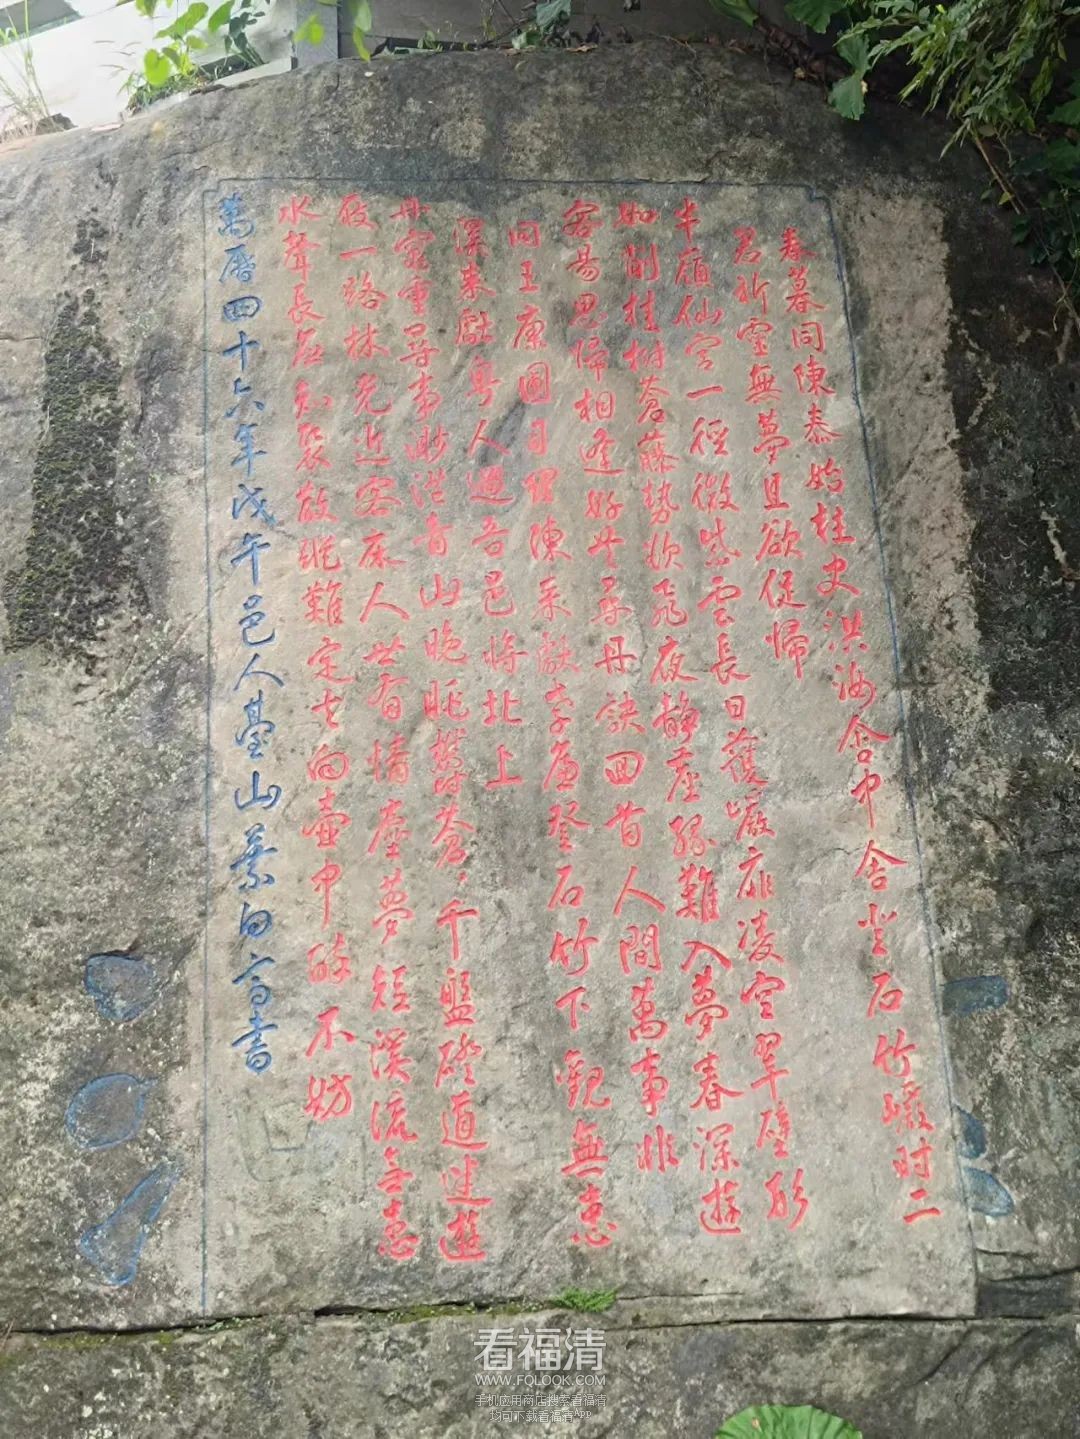 春暮同陳泰始柱史洪汝含中舍登石竹巖时二
君祈靈無夢且欲促歸
半嶺仙宮一徑微紫雲長日護巖扉凌空翠壁形
如削挂樹蒼藤勢欲飛夜靜塵緣難入夢春深遊
客易思歸相逢好共尋丹訣回首人間萬事非
同王康國司理陳采獻孝廉登石竹下觀無患
溪來獻粵人遊吾邑將北上
丹竈重尋事渺茫青山晚眺鬱蒼蒼千盤磴道迷遊
屐一路林光近客床人世有情塵夢短溪流無恙
水聲長 知 難定 向壺中醉不妨
萬曆四十六年戊午邑人臺山葉向高書
看福清
WWW.FOLOOK.COM
手机应用商店搜索看福清
均可下载看福清App